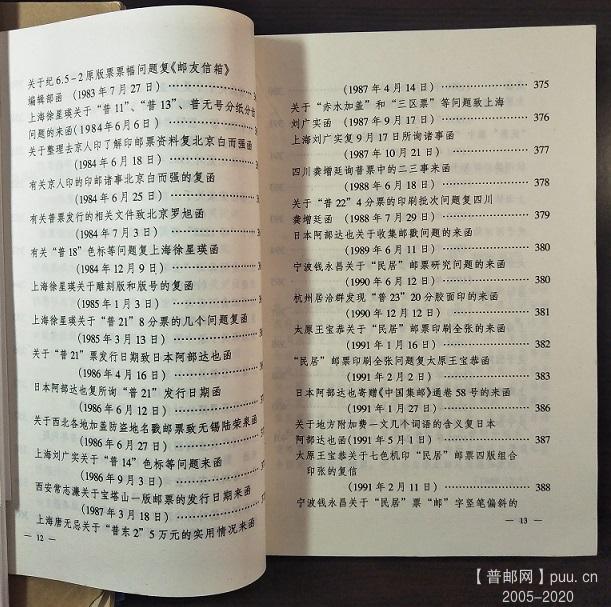 关于纪6.5-2原版票票幅问题复《邮友信箱》
编辑部函 (1983年7月27日)
上海徐星瑛关于“普11”、“普13”、普无号分纸分齿
问题的来函(1984年6月6日)
关于整理去京人印了解印邮票资料复北京白而强函
(1984年6月18日)
有关京人印的印邮诸事北京白而强的复函
(1984年6月25日)
有关普票发行的相关文件致北京罗旭函
(1984年7月3日)
有关“普18”色标等问题复上海徐星瑛函
(1984年12月9日)
上海徐星瑛关于雕刻版和版号的复函
(1985年1月3日)
上海徐星瑛关于“普21”8分票的几个问题复函
(1985年3月13日)
关于“普21”票发行日期致日本阿部达也函
(1986年4月16日)
日本阿部达也复所询“普21”发行日期函
(1986年6月12日)
关于西北各地加盖防盗地名戳邮票致无锡陆荣来函
(1986年6月27日)
上海刘广实关于“普14”色标等问题来函
(1986年9月3日)
西安常志濂关于宝塔山一版邮票的发行日期来函
(1987年3月18日)
上海唐无忌关于“普东2”5万元的实用情况来函
— 12 —
(1987年4月14日) 375
关于“赤水加盖”和“三区票”等问题致上海
刘广实函 (1987年9月17日) 376
上海刘广实复9月17日所询诸事函
(1987年10月21日) 377
四川龚增廷询普票中的二三事来函
(1988年6月18日) 378
关于“普22”4分票的印刷批次问题复四川
龚增廷函 (1988年7月29日) 379
日本阿部达也关于收集邮戳问题的来函
(1989年6月11日) 380
宁波钱永昌关于“民居”邮票研究问题的来函
(1990年6月12日) 380
杭州居洽群发现“普23”20分胶面印的来函
(1990年12月12日) 381
太原王宝恭关于“民居”邮票印刷全张的来函
(1991年1月16日) 382
“民居”邮票印刷全张问题复太原王宝恭函
(1991年2月2日) 383
日本阿部达也寄赠《中国集邮》通卷58号的来函
(1991年1月27日) 386
关于地方附加费一文几个词语的含义复日本
阿部达也函(1991年5月1日) 387
太原王宝恭关于七色机印“民居”邮票四版组合
印张的复信
(1991年2月11日) 388
宁波钱永昌关于“民居”票“邮”字竖笔偏斜的
— 13 —
【普邮网】puu.cn
2005-2020